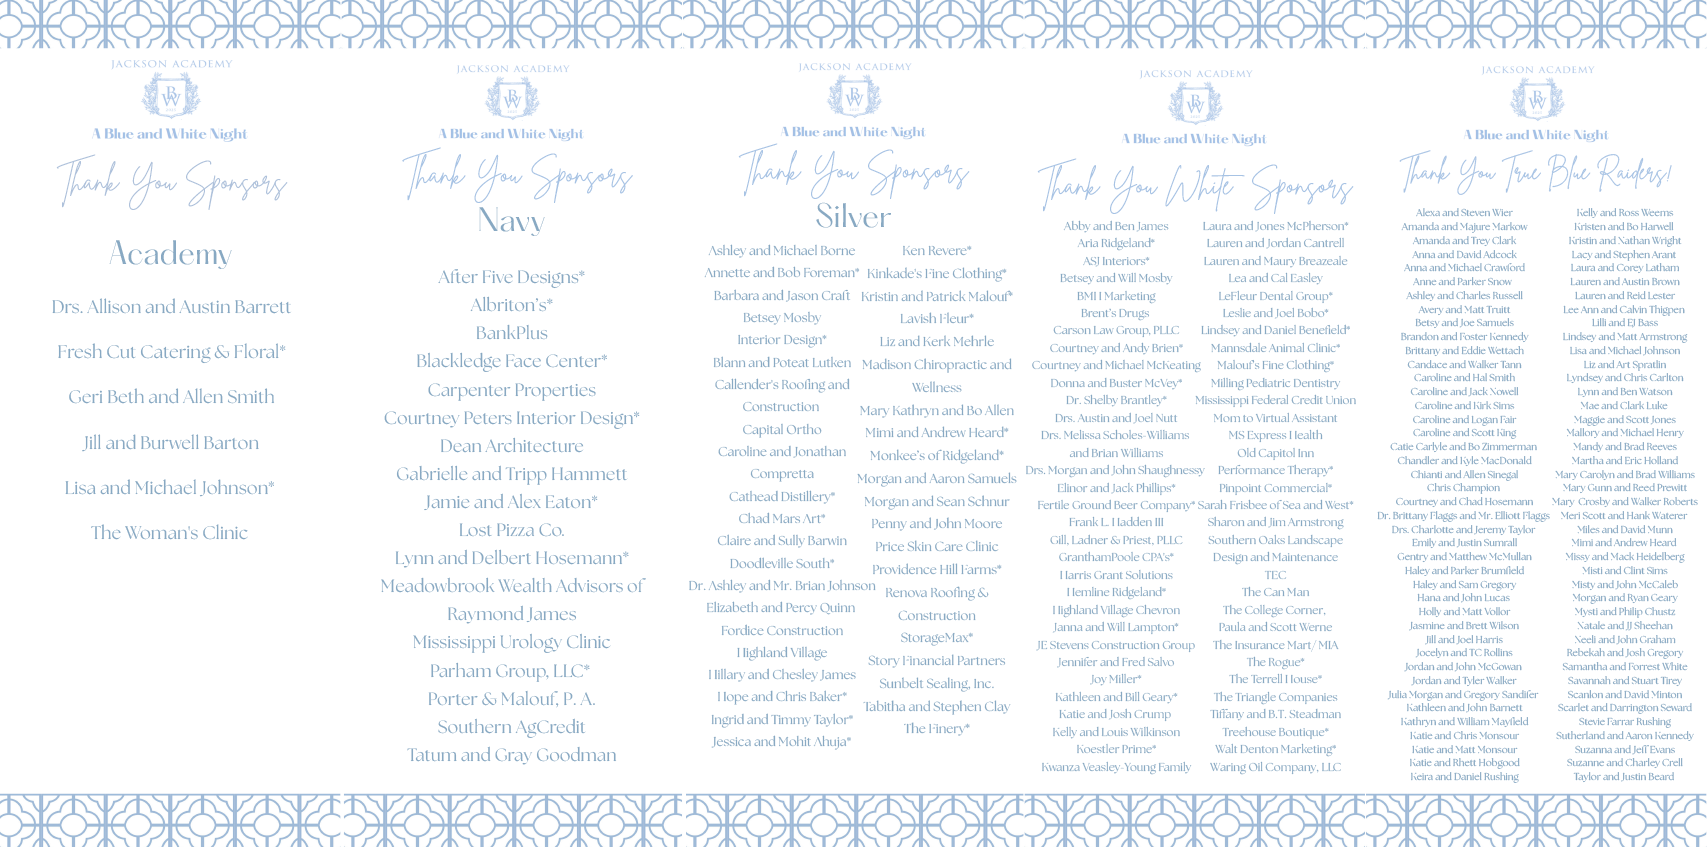 JACKSON ACADEMY
BW
A Blue and White Night
Thank You Sponsors
Academy
Drs. Allison and Austin Barrett
Fresh Cut Catering & Floral*
Geri Beth and Allen Smith
Jill and Burwell Barton
Lisa and Michael Johnson*
The Woman's Clinic
JACKSON ACADEMY
BW
A Blue and White Night
Thank You Sponsors
Navy
After Five Designs*
Albriton's*
BankPlus
Blackledge Face Center*
Carpenter Properties
Courtney Peters Interior Design*
Dean Architecture
Gabrielle and Tripp Hammett
Jamie and Alex Eaton*
Lost Pizza Co.
Lynn and Delbert Hosemann*
Meadowbrook Wealth Advisors of
Raymond James
Mississippi Urology Clinic
Parham Group, LLC*
Porter & Malouf, P. A.
Southern AgCredit
Tatum and Gray Goodman
JACKSON ACADEMY
BW
A Blue and White Night
Thank You Sponsors
Silver
Ashley and Michael Borne
Annette and Bob Foreman*
Barbara and Jason Craft
Betsey Mosby
Interior Design*
Blann and Poteat Lutken
Callender's Roofing and
Construction
Capital Ortho
Caroline and Jonathan
Compretta
Cathead Distillery*
Chad Mars Art*
Claire and Sully Barwin
Doodleville South*
Dr. Ashley and Mr. Brian Johnson
Elizabeth and Percy Quinn
Fordice Construction
Highland Village
Hillary and Chesley James
Hope and Chris Baker*
Ingrid and Timmy Taylor*
Jessica and Mohit Ahuja*
Ken Revere*
Kinkade's Fine Clothing*
Kristin and Patrick Malouf*
Lavish Fleur*
Liz and Kerk Mehrle
Madison Chiropractic and
Wellness
Mary Kathryn and Bo Allen
Mimi and Andrew Heard*
Monkee's of Ridgeland*
Morgan and Aaron Samuels
Morgan and Sean Schnur
Penny and John Moore
Price Skin Care Clinic
Providence Hill Farms*
Renova Roofing &
Construction
StorageMax*
Story Financial Partners
Sunbelt Sealing, Inc.
Tabitha and Stephen Clay
The Finery*
JACKSON ACADEMY
BW
A Blue and White Night
Thank You White Sponsors
Abby and Ben James
Aria Ridgeland*
ASJ Interiors*
Betsey and Will Mosby
BMH Marketing
Brent's Drugs
Carson Law Group, PLLC
Courtney and Andy Brien*
Courtney and Michael McKeating
Donna and Buster McVey*
Dr. Shelby Brantley*
Drs. Austin and Joel Nutt
Drs. Melissa Scholes-Williams
and Brian Williams
Drs. Morgan and John Shaughnessy
Elinor and Jack Phillips*
Fertile Ground Beer Company*
Frank L. Hadden III
Gill, Ladner & Priest, PLLC
GranthamPoole CPA's*
Harris Grant Solutions
Hemline Ridgeland*
Highland Village Chevron
Janna and Will Lampton*
JE Stevens Construction Group
Jennifer and Fred Salvo
Joy Miller*
Kathleen and Bill Geary*
Katie and Josh Crump
Kelly and Louis Wilkinson
Koestler Prime*
Kwanza Veasley-Young Family
Laura and Jones McPherson*
Lauren and Jordan Cantrell
Lauren and Maury Breazeale
Lea and Cal Easley
LeFleur Dental Group*
Leslie and Joel Bobo*
Lindsey and Daniel Benefield*
Mannsdale Animal Clinic*
Malouf's Fine Clothing*
Milling Pediatric Dentistry
Mississippi Federal Credit Union
Mom to Virtual Assistant
MS Express Health
Old Capitol Inn
Performance Therapy*
Pinpoint Commercial*
Sarah Frisbee of Sea and West*
Sharon and Jim Armstrong
Southern Oaks Landscape
Design and Maintenance
TEC
The Can Man
The College Corner,
Paula and Scott Werne
The Insurance Mart/ MIA
The Rogue*
The Terrell House*
The Triangle Companies
Tiffany and B.T. Steadman
Treehouse Boutique*
Walt Denton Marketing*
Waring Oil Company, LLC
JACKSON ACADEMY
BW
A Blue and White Night
Thank You True Blue Raiders!
Alexa and Steven Wier
Amanda and Majure Markow
Amanda and Trey Clark
Anna and David Adcock
Anna and Michael Crawford
Anne and Parker Snow
Ashley and Charles Russell
Avery and Matt Truitt
Betsy and Joe Samuels
Brandon and Foster Kennedy
Brittany and Eddie Wettach
Candace and Walker Tann
Caroline and Hal Smith
Caroline and Jack Nowell
Caroline and Kirk Sims
Caroline and Logan Fair
Caroline and Scott King
Catie Carlyle and Bo Zimmerman
Chandler and Kyle MacDonald
Chianti and Allen Sinegal
Chris Champion
Courtney and Chad Hosemann
Dr. Brittany Flaggs and Mr. Elliott Flaggs
Drs. Charlotte and Jeremy Taylor
Emily and Justin Sumrall
Gentry and Matthew McMullan
Haley and Parker Brumfield
Haley and Sam Gregory
Hana and John Lucas
Holly and Matt Vollor
Jasmine and Brett Wilson
Jill and Joel Harris
Jocelyn and TC Rollins
Jordan and John McGowan
Jordan and Tyler Walker
Julia Morgan and Gregory Sandifer
Kathleen and John Barnett
Kathryn and William Mayfield
Katie and Chris Monsour
Katie and Matt Monsour
Katie and Rhett Hobgood
Keira and Daniel Rushing
Kelly and Ross Weems
Kristen and Bo Harwell
Kristin and Nathan Wright
Lacy and Stephen Arant
Laura and Corey Latham
Lauren and Austin Brown
Lauren and Reid Lester
Lee Ann and Calvin Thigpen
Lilli and EJ Bass
Lindsey and Matt Armstrong
Lisa and Michael Johnson
Liz and Art Spratlin
Lyndsey and Chris Carlton
Lynn and Ben Watson
Mae and Clark Luke
Maggie and Scott Jones
Mallory and Michael Henry
Mandy and Brad Reeves
Martha and Eric Holland
Mary Carolyn and Brad Williams
Mary Gunn and Reed Prewitt
Mary Crosby and Walker Roberts
Meri Scott and Hank Waterer
Miles and David Munn
Mimi and Andrew Heard
Missy and Mack Heidelberg
Misti and Clint Sims
Misty and John McCaleb
Morgan and Ryan Geary
Mysti and Philip Chustz
Natale and JJ Sheehan
Neeli and John Graham
Rebekah and Josh Gregory
Samantha and Forrest White
Savannah and Stuart Tirey
Scanlon and David Minton
Scarlet and Darrington Seward
Stevie Farrar Rushing
Sutherland and Aaron Kennedy
Suzanna and Jeff Evans
Suzanne and Charley Crell
Taylor and Justin Beard